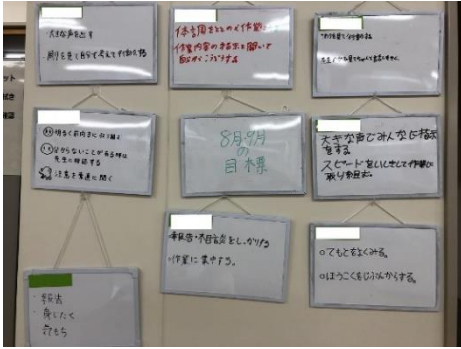 ・大きな声を出す
周りを見て自分で考えて行動する
体調をととのえ作業
作業内容の指示を聞いて
明るく前向きに取り組む
分からないことがある時は
先生に確認する
注意を素直に聞く
8月・9月
の
目標
大きな声でみんなに指示
をする
スピードをいしきして作業に
取り組む。
・報告・相談をしっかりする
○作業に集中する。
○てもとをよくみる。
○ほうこくをじぶんからする。
・報告
・身じたく
気もち